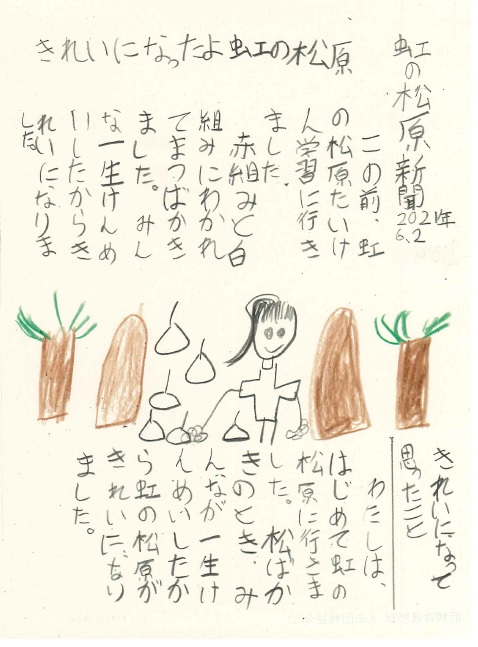 虹の松原新聞
2021年
6.2
きれいになったよ虹の松原
この前、虹
の松原たいけ
ん学習に行き
ました。
赤組みと白
組みにわかれ
てまつばかき
ました。みん
な一生けんめ
いしたからき
れいになりま
した。
きれいになって
思ったこと
わたしは、
はじめて虹の
松原に行きま
した。松ばか
きのとき、み
んなが一生け
んめいしたか
ら虹の松原が
きれいになり
ました。